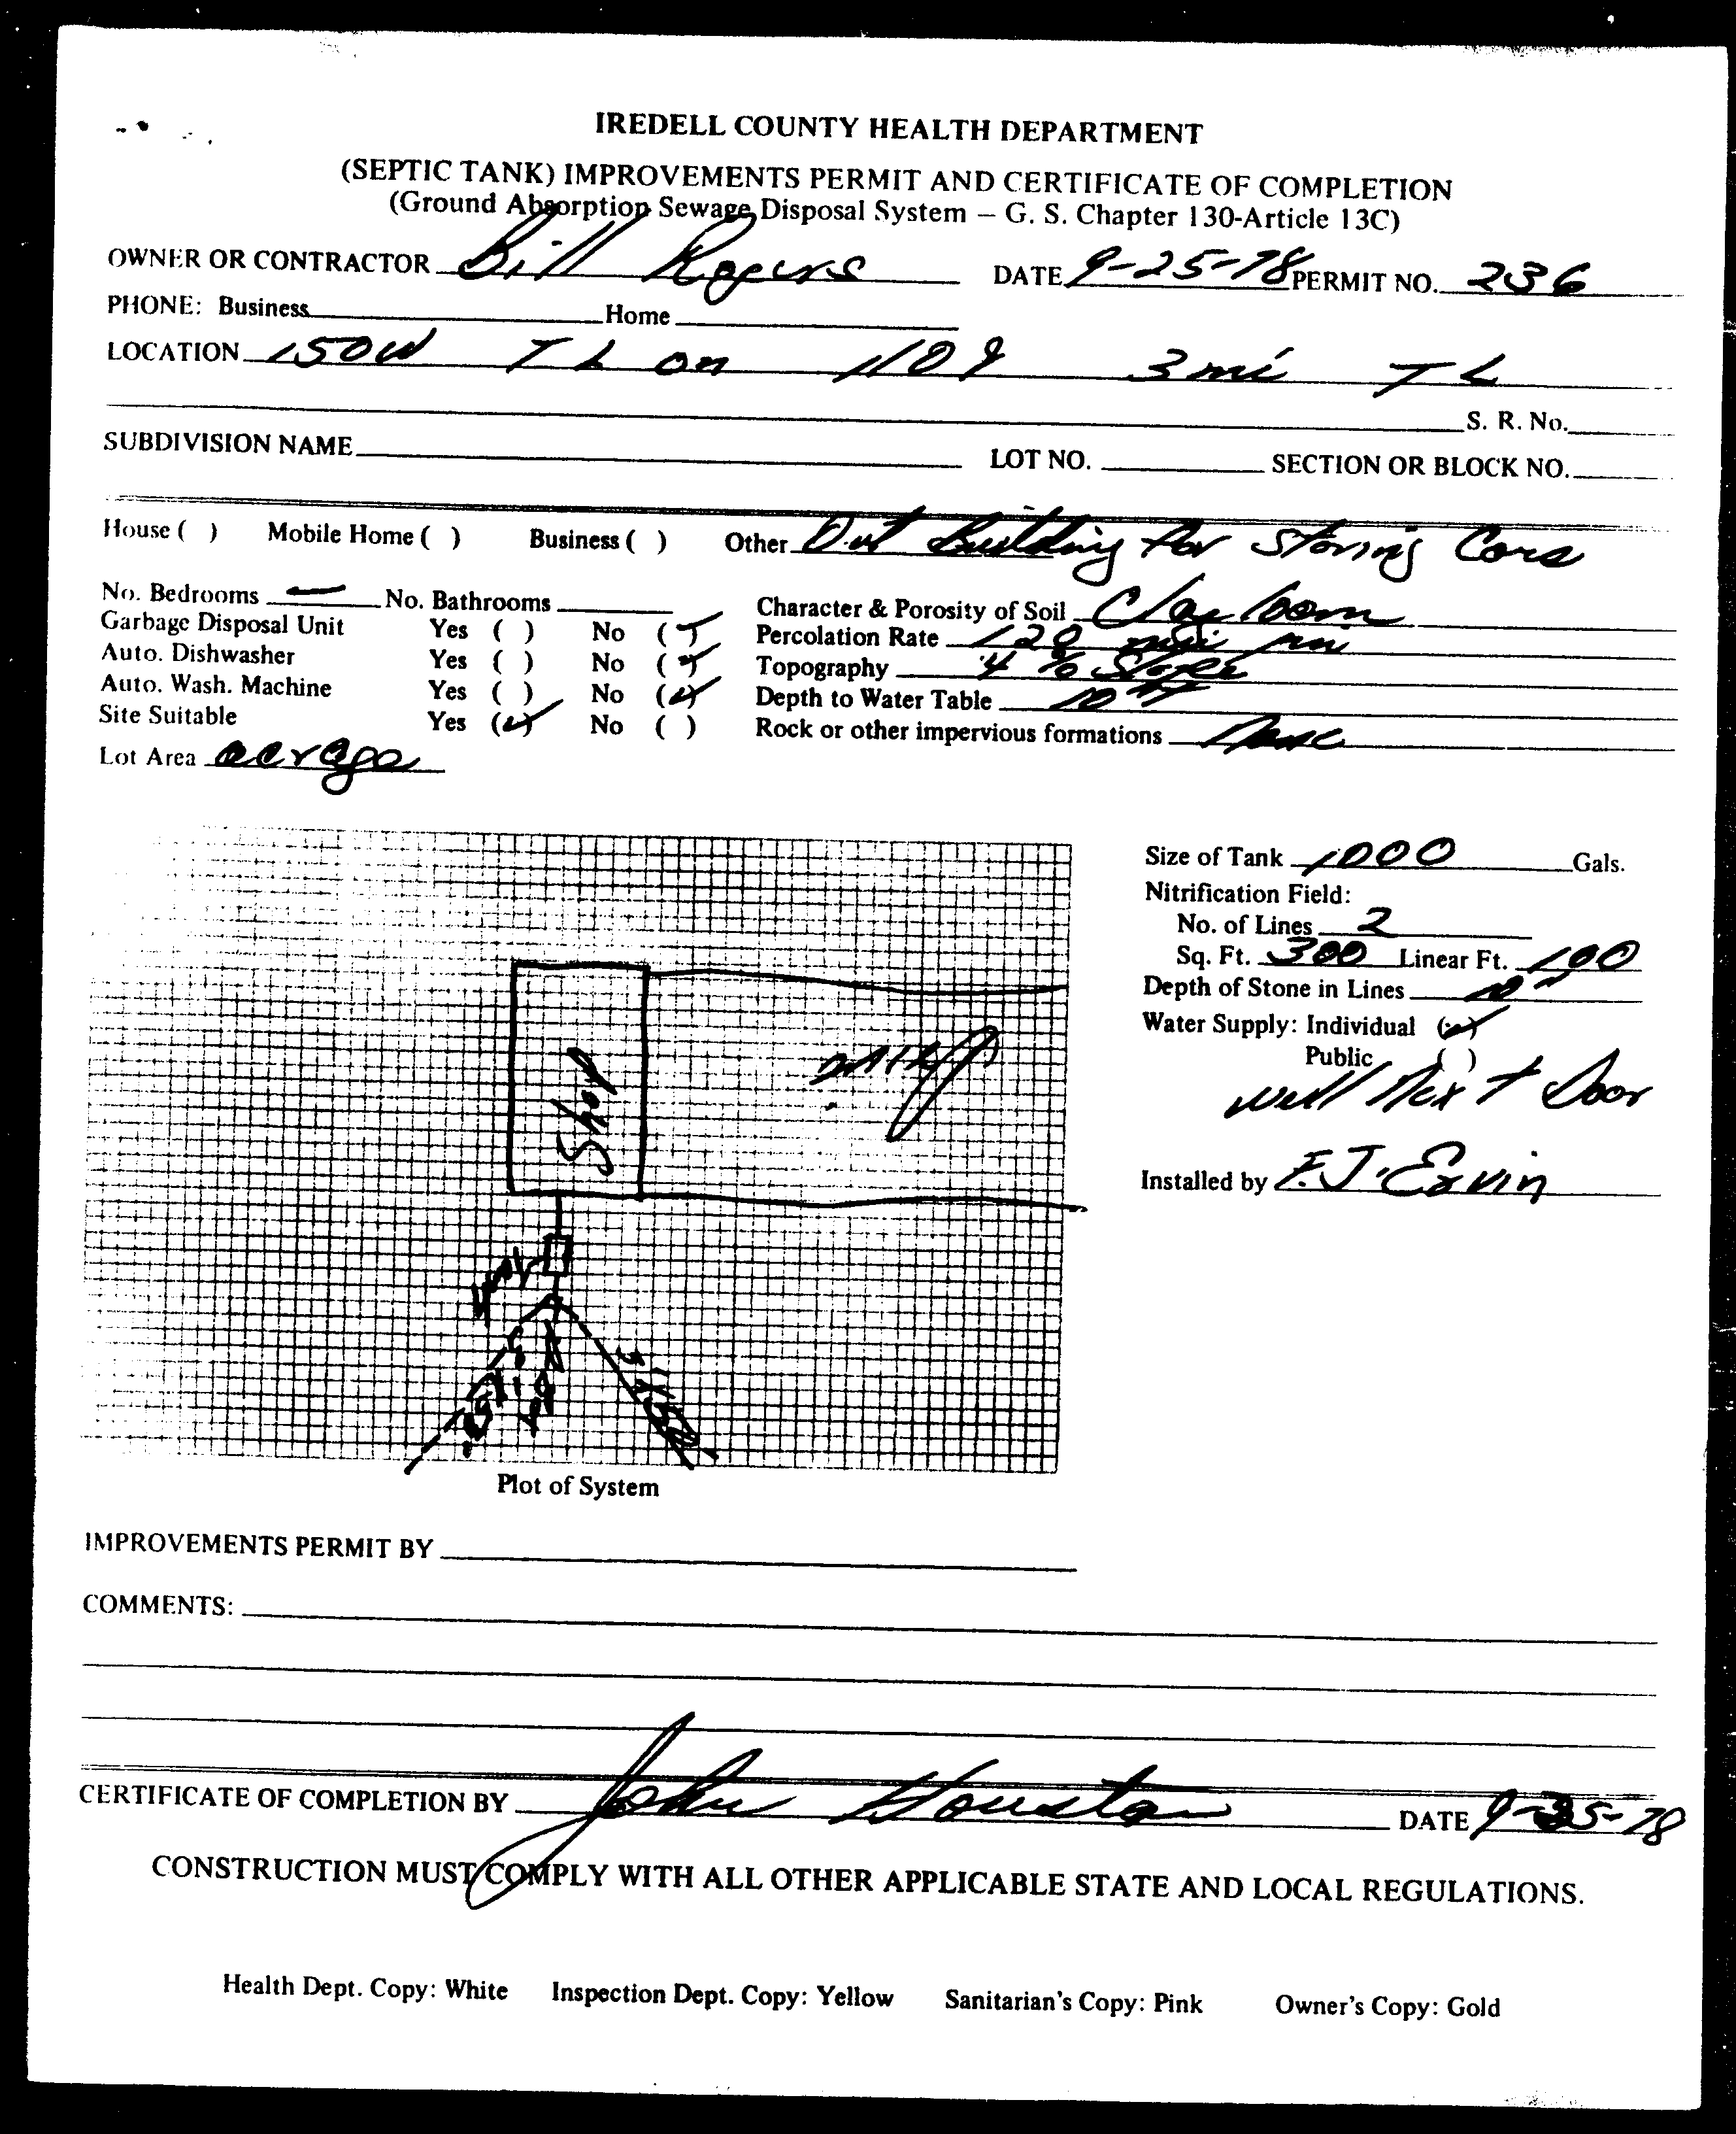 IREDELL COUNTY HEALTH DEPARTMENT
(SEPTIC TANK) IMPROVEMENTS PERMIT AND CERTIFICATE OF COMPLETION
(Ground Absorption Sewage Disposal System – G. S. Chapter 130-Article 13C)
OWNER OR CONTRACTOR Bill Rogers DATE 9-25-78 PERMIT NO. 236
PHONE: Business Home
LOCATION 150W TL on 1109 3 mi TL
S. R. No.
SUBDIVISION NAME LOT NO. SECTION OR BLOCK NO.
House ( ) Mobile Home ( ) Business ( ) Other Out Building for Storing Cars
No. Bedrooms — No. Bathrooms Character & Porosity of Soil Clay loam
Garbage Disposal Unit Yes ( ) No (✓) Percolation Rate 120
Auto. Dishwasher Yes ( ) No (✓) Topography 4 % Slope
Auto. Wash. Machine Yes ( ) No (✓) Depth to Water Table 10 ft
Site Suitable Yes (✓) No ( ) Rock or other impervious formations None
Lot Area acrage
Size of Tank 1000 Gals.
Nitrification Field:
No. of Lines 2
Sq. Ft. 300 Linear Ft. 100
Depth of Stone in Lines 10"
Water Supply: Individual (✓)
Public ( )
well Next Door
Installed by F.J. Ervin
Shop
Plot of System
IMPROVEMENTS PERMIT BY
COMMENTS:
CERTIFICATE OF COMPLETION BY John Houston DATE 9-25-78
CONSTRUCTION MUST COMPLY WITH ALL OTHER APPLICABLE STATE AND LOCAL REGULATIONS.
Health Dept. Copy: White Inspection Dept. Copy: Yellow Sanitarian's Copy: Pink Owner's Copy: Gold